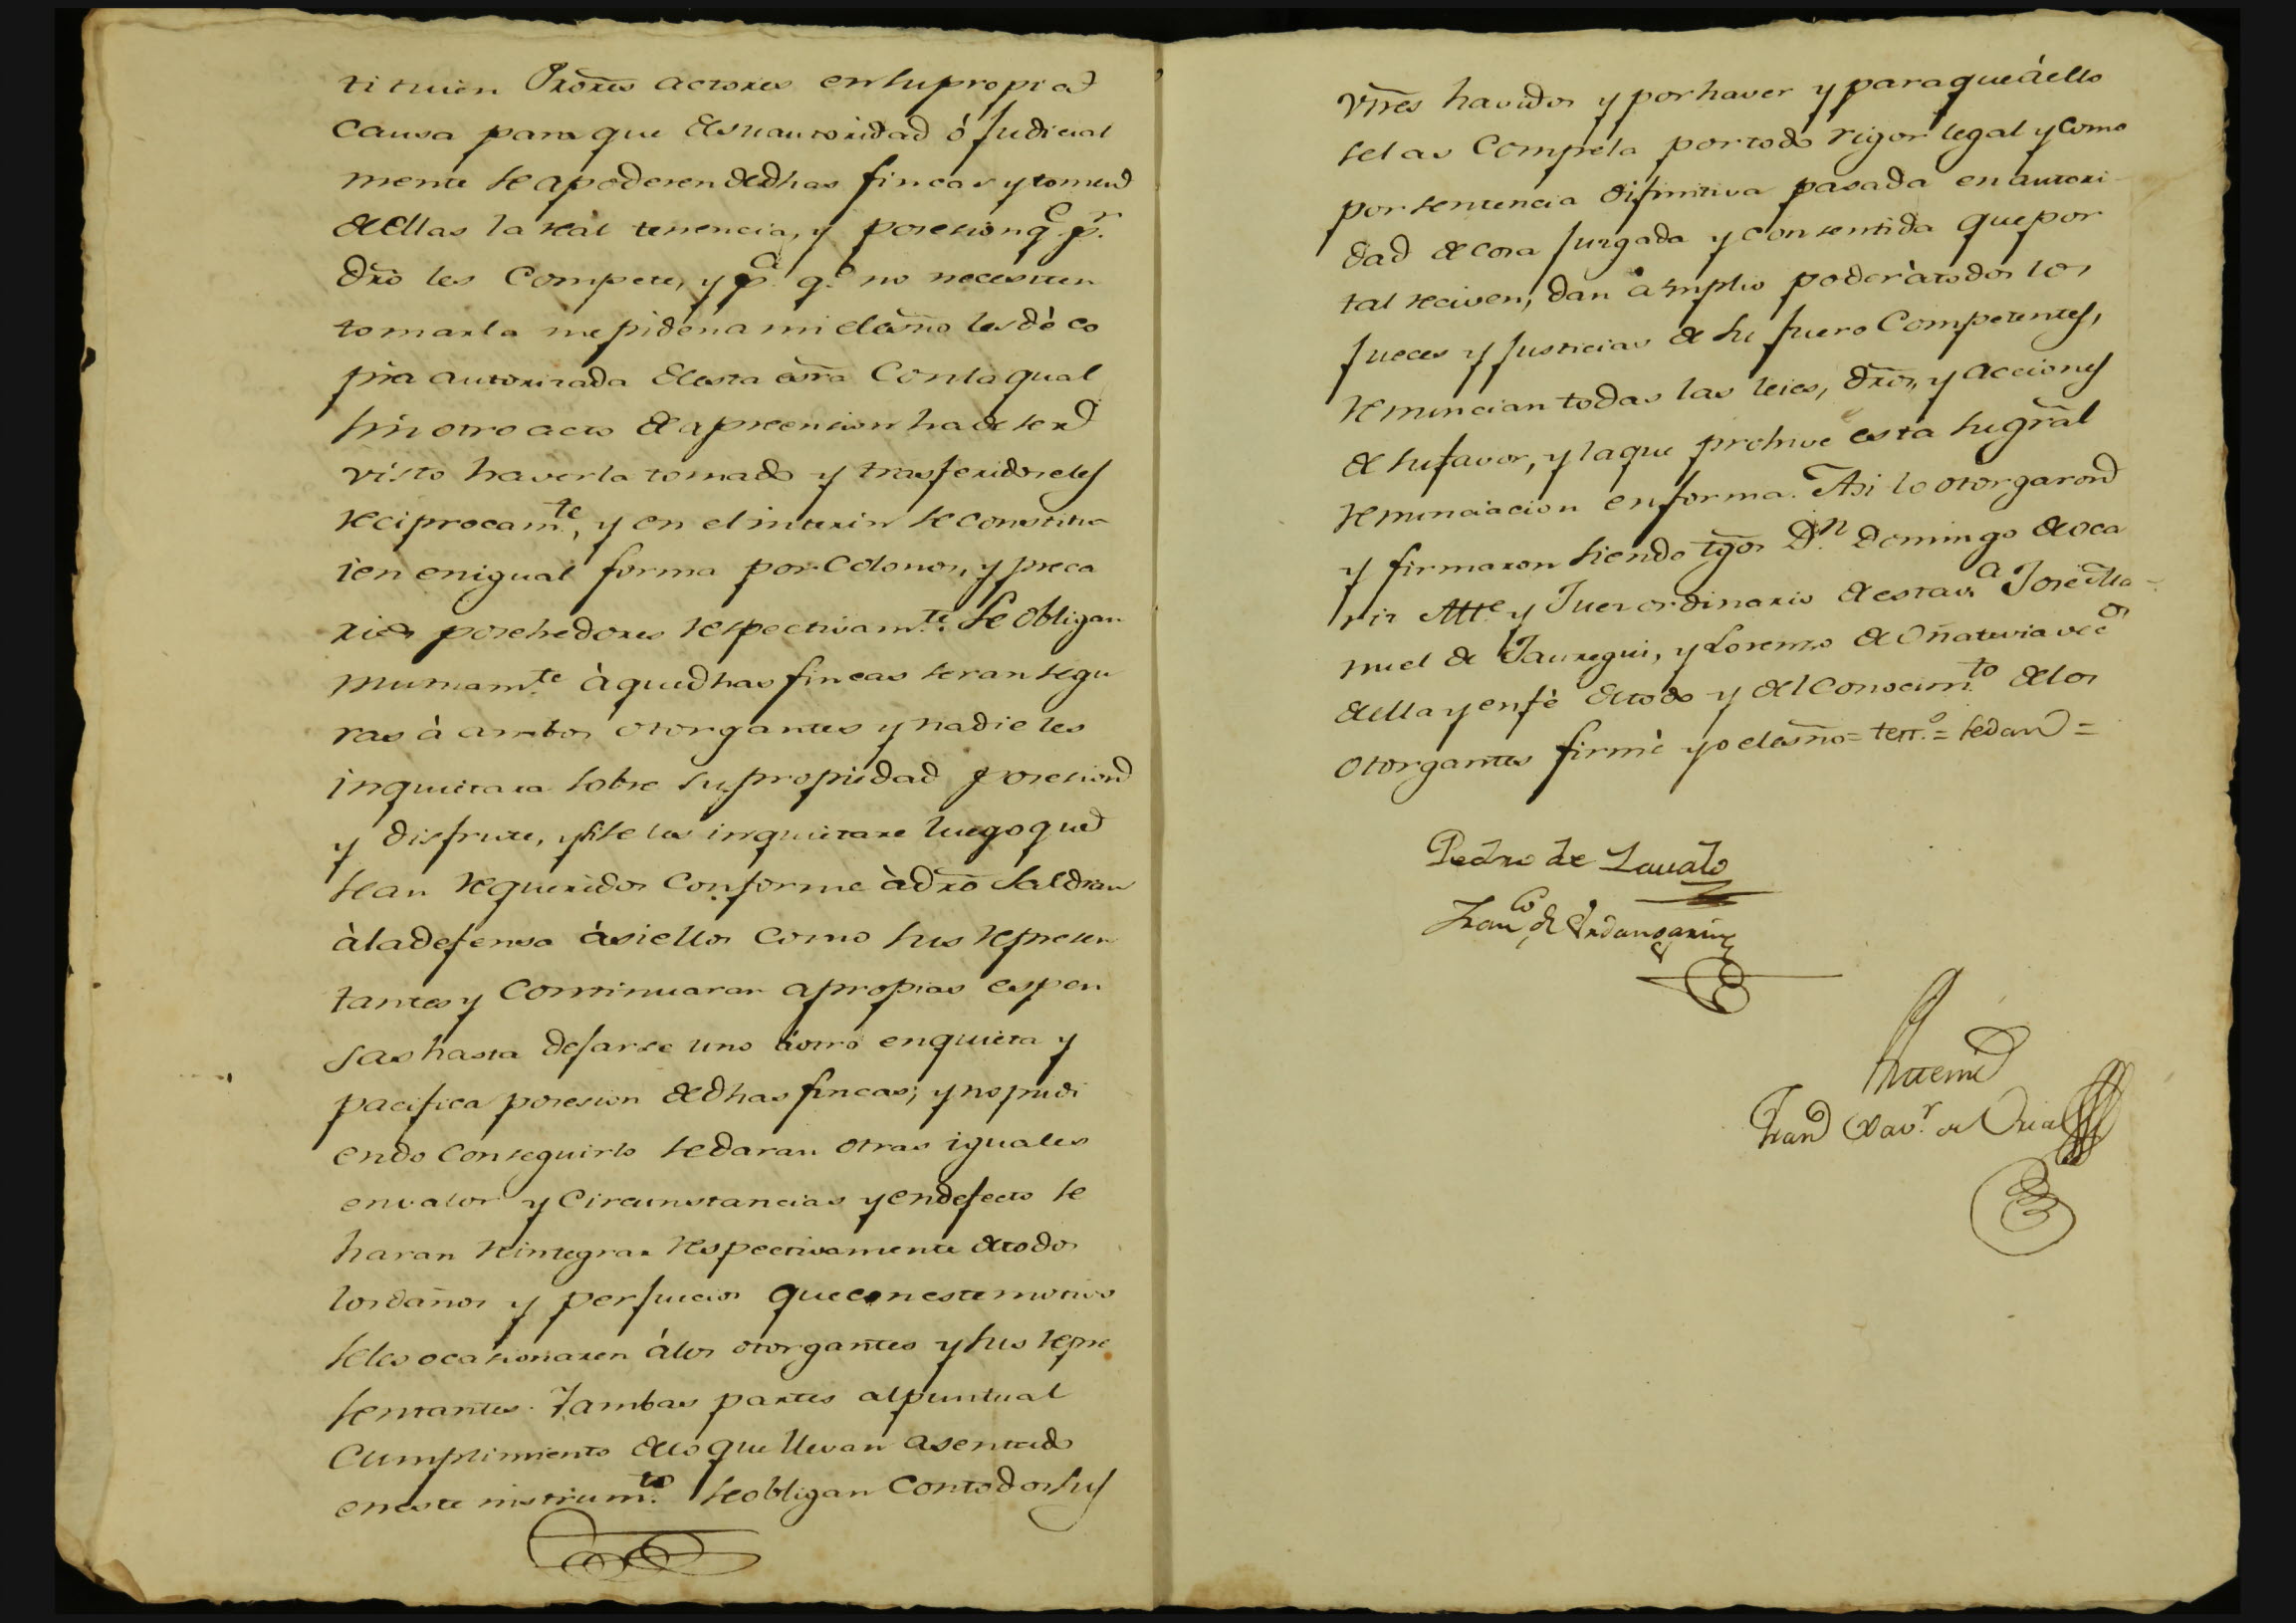 tituien Prores actores en su propia
causa para que de su autoridad ó Judicial
mente se apoderen de dhas fincas y tomen
de ellas la real tenencia, y posesion q.e p.r
dro les compete, y p.a q.e no necesiten
tomarla me piden a mi el esno les dé co
pia autorizada de esta esra con la qual
sin otro acto de apreension ha de ser
visto haverla tomado y trasferidoseles
reciprocam.te, y en el interin se constitu
ien en igual forma por colonos, y preca
rios posehedores respectivam.te Se obligan
mutuam.te à que dhas fincas seran segu
ras à ambos otorgantes y nadie les
inquietara sobre su propiedad posesion
y disfrute, y si se les inquietare luego que
sean requeridos conforme à dro saldran
à la defensa àsi ellos como sus represen
tantes y continuaran a propias espen
sas hasta dejarse uno à otro en quieta y
pacifica posesion de dhas fincas; y no pudi
endo conseguirlo se daran otras iguales
en valor y circunstancias y en defecto se
haran reintegrar respectivamente de todos
los daños y perjuicios que con este motivo
se les ocasionaren à los otorgantes y sus repre
sentantes. Y ambas partes al puntual
cumplimiento de lo que llevan asentado
en este instrum.to se obligan con todos sus
vnes havidos y por haver y para que à ello
se las compela por todo rigor legal y como
por sentencia difinitiva pasada en autori
dad de cosa juzgada y consentida que por
tal reciven, dan amplio poder à todos los
Jueces y Justicias de su fuero competentes,
renuncian todas las leies, dros, y acciones
de su favor, y la que prohive esta su gral
renunciacion en forma. Asi lo otorgaron
y firmaron siendo tgos D.n Domingo de Oca
riz Atte y Juez ordinario de esta v.a José Ma
nuel de Jauregui, y Lorenzo de Oñatevia vec.os
de ella y en fè de todo y del conocim.to de los
otorgantes firmè yo el esno = terr.o = se dan =
Pedro de
Fran.co de Urdangarin
Ante mi
Fran Xav.r de Oria